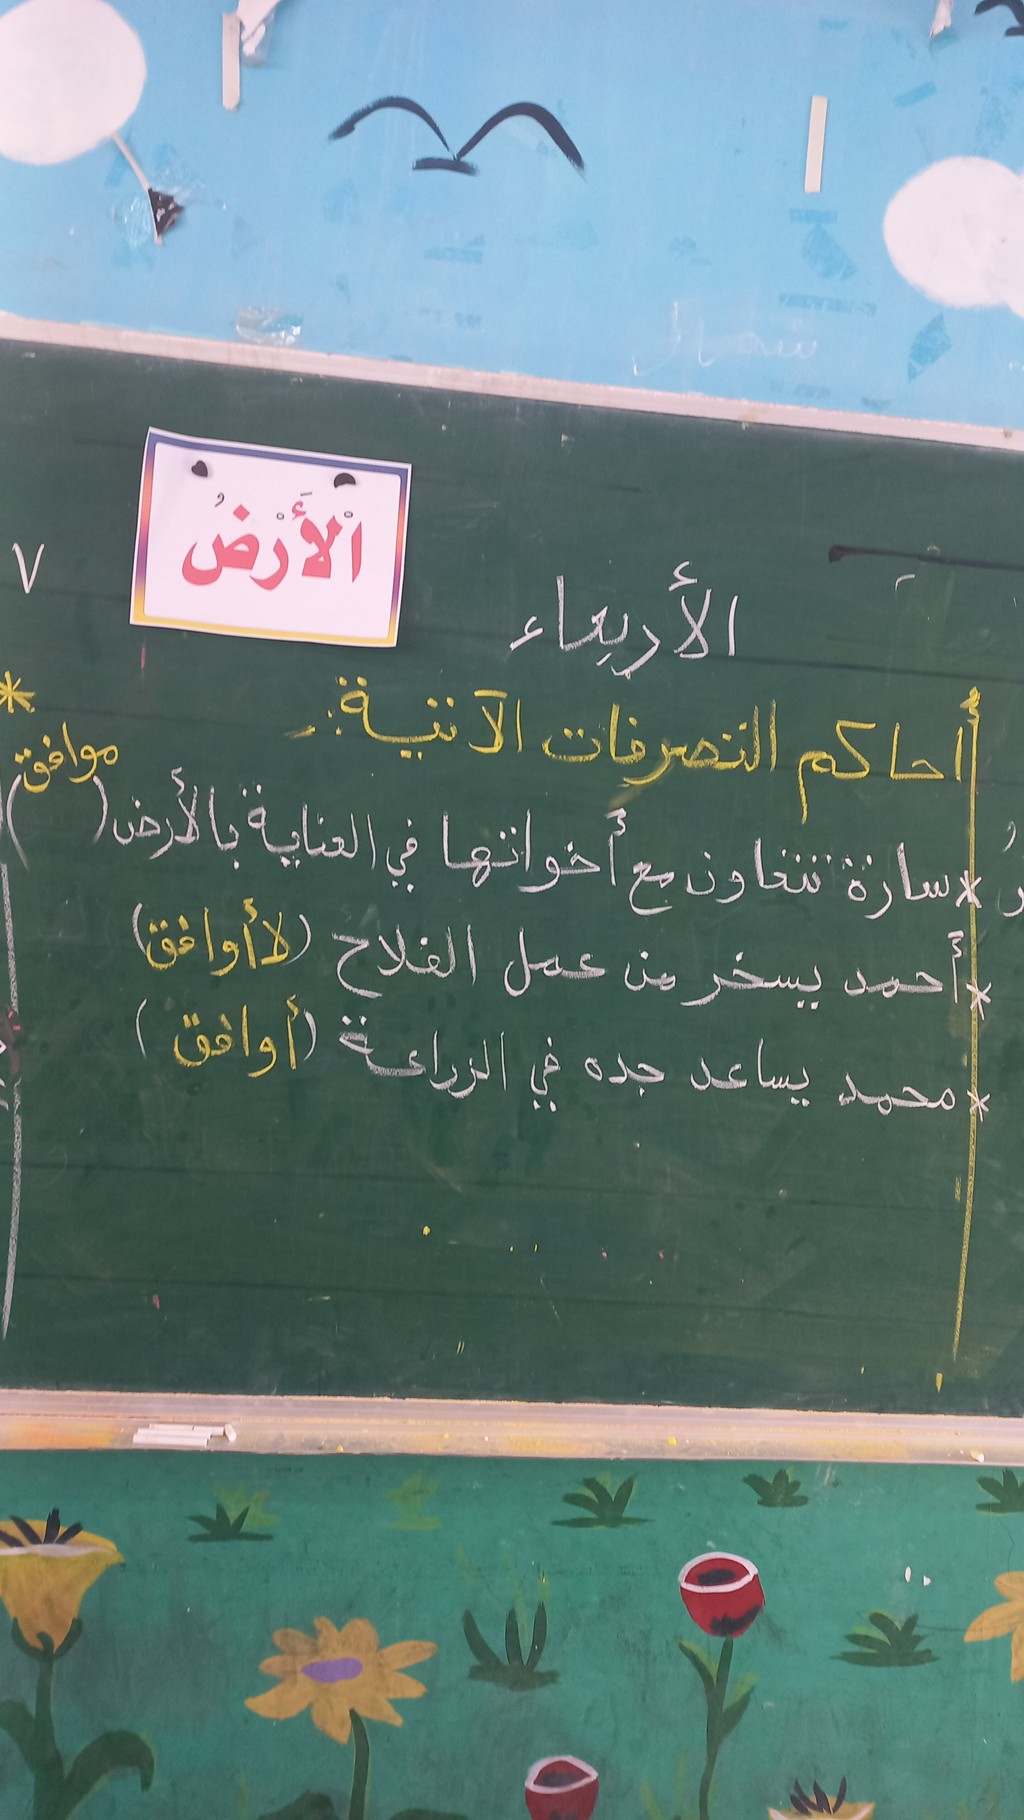 شمال
الْأَرْضُ
٧
الأربعاء
أحاكم التصرفات الآتية:
موافق
* سارة تتعاون مع أخواتها في العناية بالأرض ( )
* أحمد يسخر من عمل الفلاح (لا أوافق)
* محمد يساعد جده في الزراعة (أوافق)